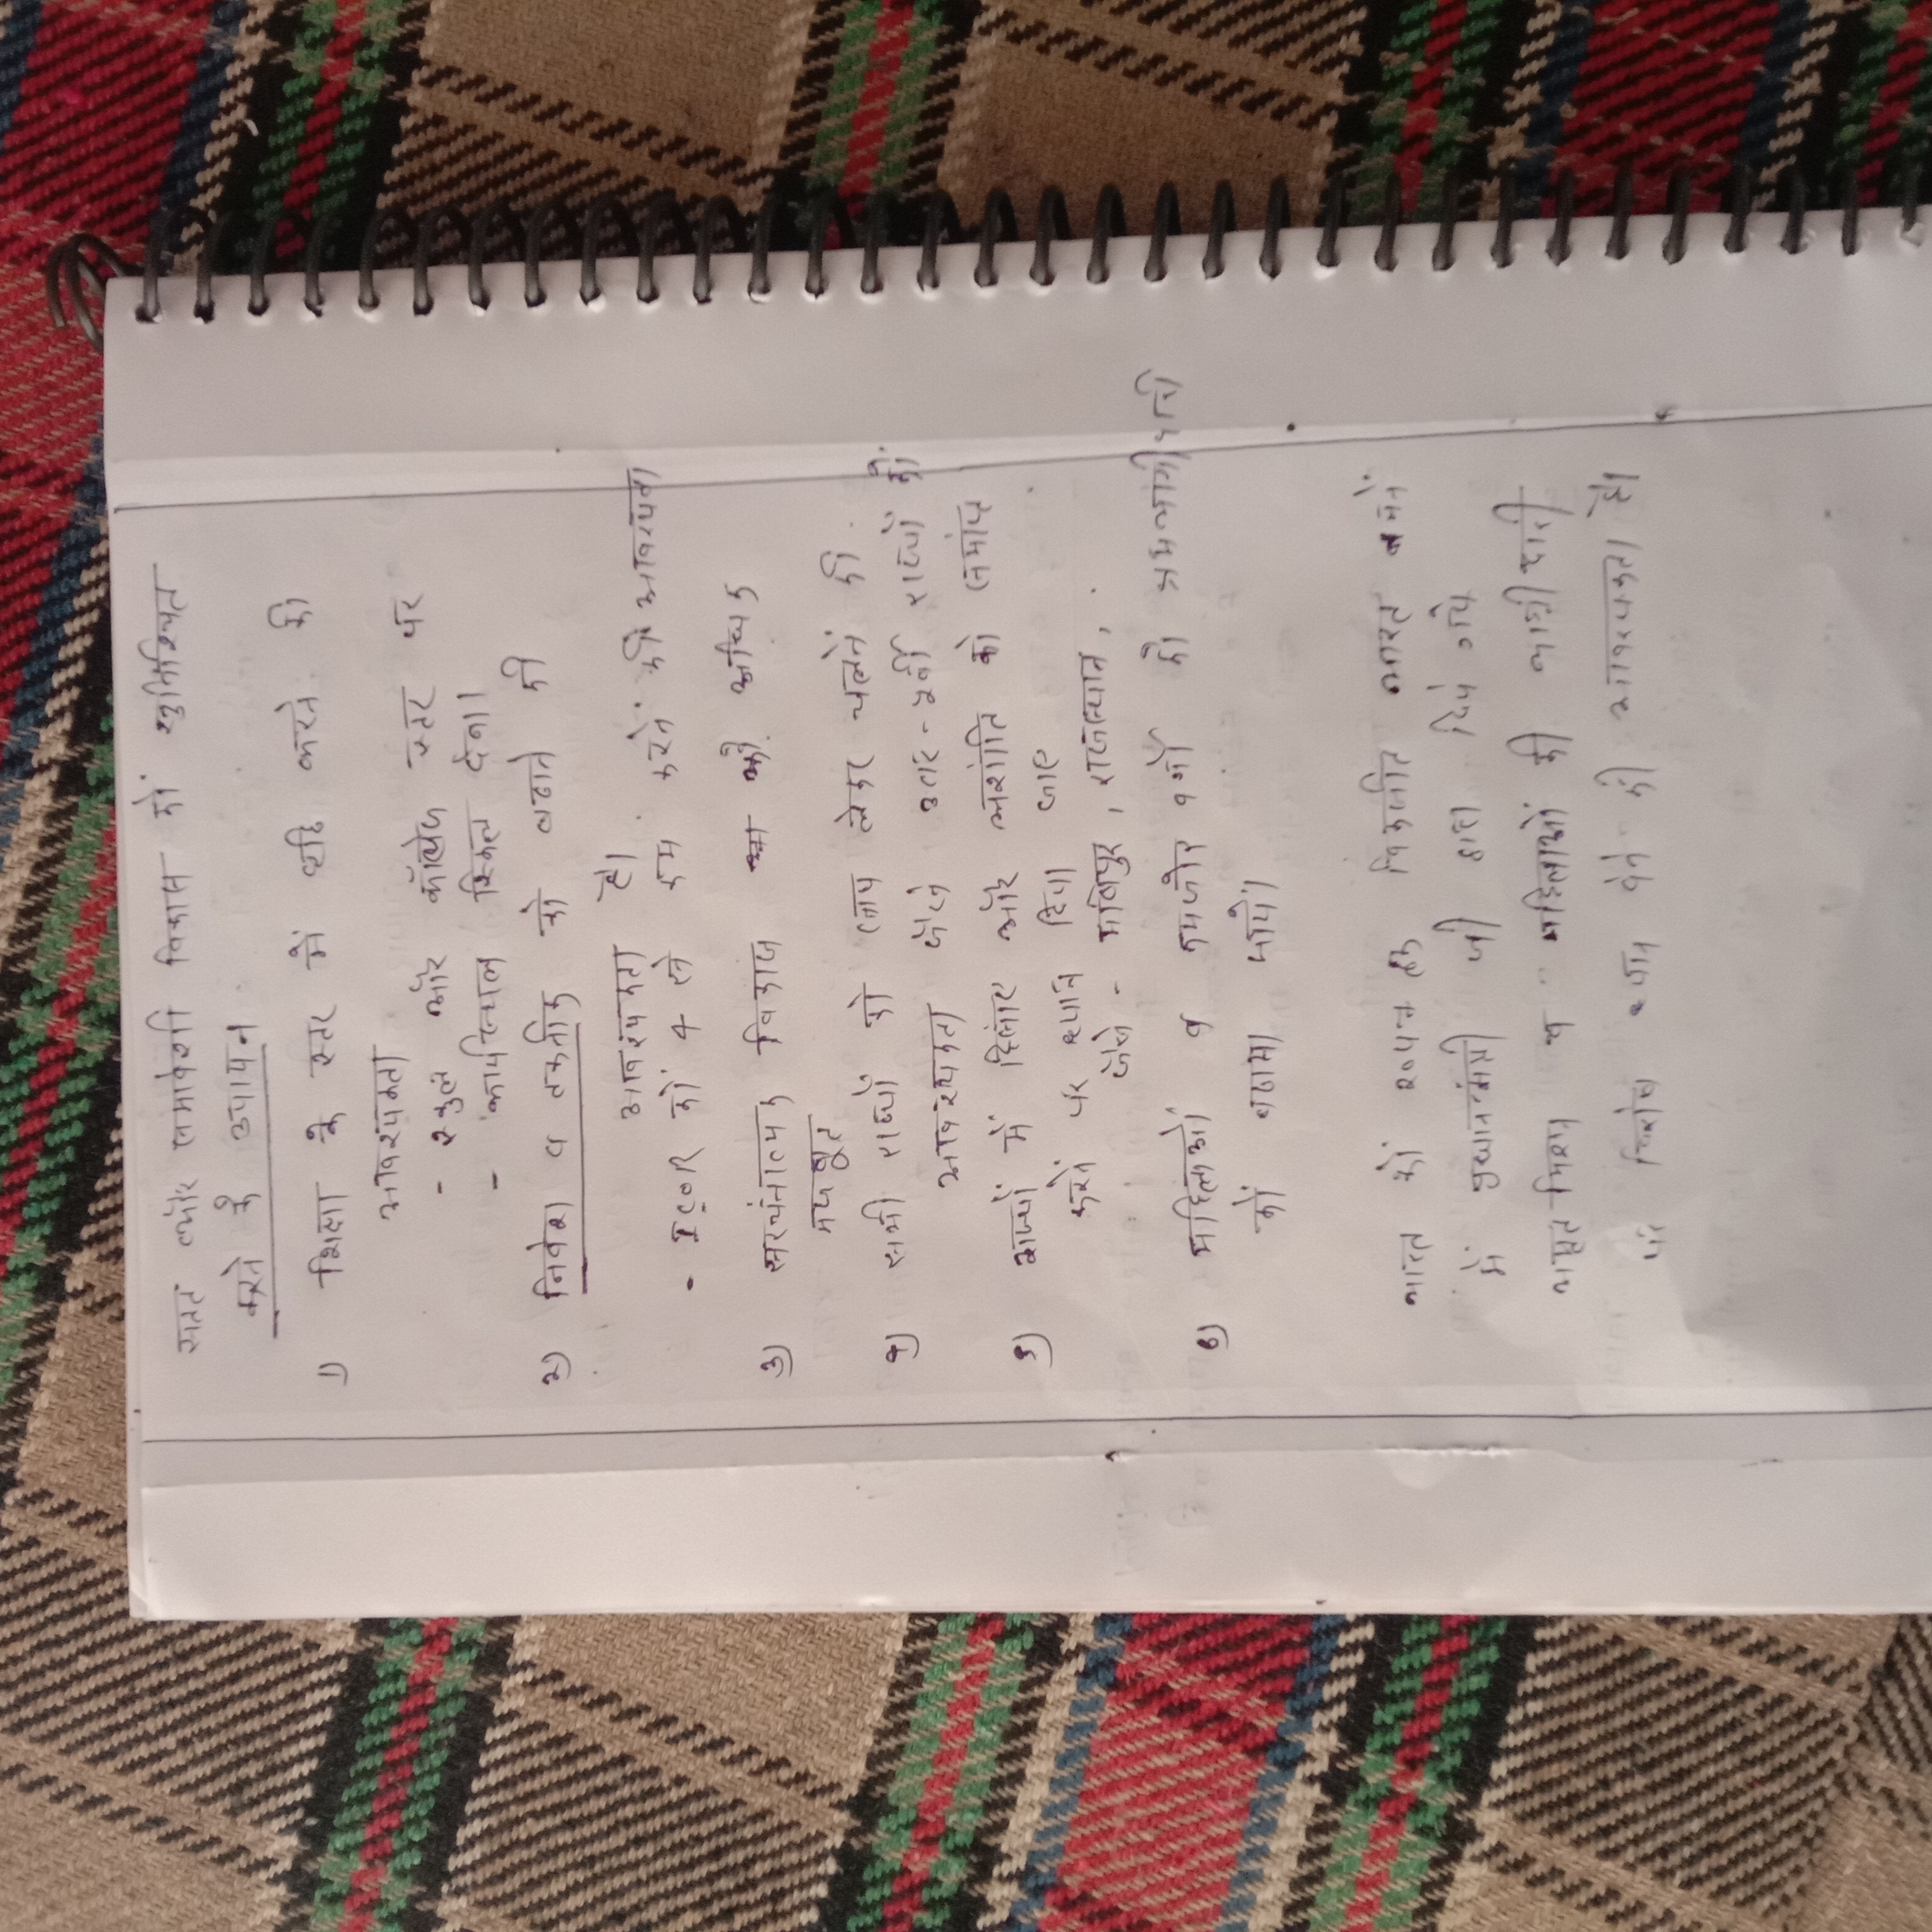 सतत और समावेशी विकास को सुनिश्चित
करने के उपायन
1) शिक्षा के स्तर में वृद्धि करने की
आवश्यकता
- स्कुल और कॉलेज स्तर पर
- कौशल स्किल देना।
2) निवेश व तकनीक को बढाने की
आवश्यकता है।
- ICOR को 4 से कम करने की आवश्यकता
3) सरचंनात्मक विकास को अधिक
मजबूत
4) सभी राज्यों को साथ लेकर चलने की
आवश्यकता जैसे उत्तर-पूर्वी राज्यों की
5) राज्यों में हिंसा और अशांति को समाप्त
करने पर ध्यान दिया जाए
जैसे - मणिपुर, राजस्थान,
6) महिलाओं व कमजोर वर्गो की सहभागीधारी
को बढाया जाये।
भारत को २०४७ तक विकसित भारत बनाने
में प्रधानमंत्री जी द्वारा दिये गये
व महिलाओं की भागीधारी
पर विशेष ध्यान देने की आवश्यकता है।